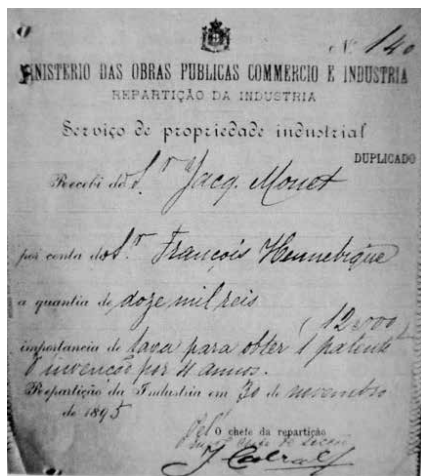 Nº 140
MINISTERIO DAS OBRAS PUBLICAS COMMERCIO E INDUSTRIA
REPARTIÇÃO DA INDUSTRIA
Serviço de propriedade industrial
DUPLICADO
Recebi do Sr Jacq. Monet
por conta do Sr François Hennebique
a quantia de doze mil reis
(12000
importancia de taxa para obter 1 patente
d'invenção por 4 annos.
Repartição da Industria em 30 de novembro
de 1895
Pel O chefe da repartição
J Cabral